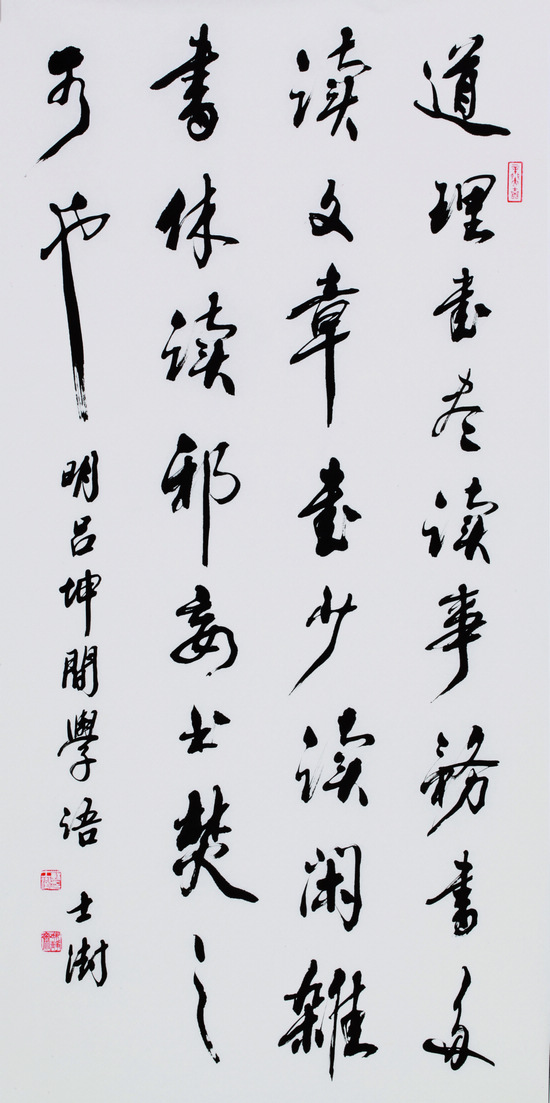 道理書尽读事務書多
读文章書少读闲雜
書休读邪妄书焚之
可也
明吕坤問學語
士澍